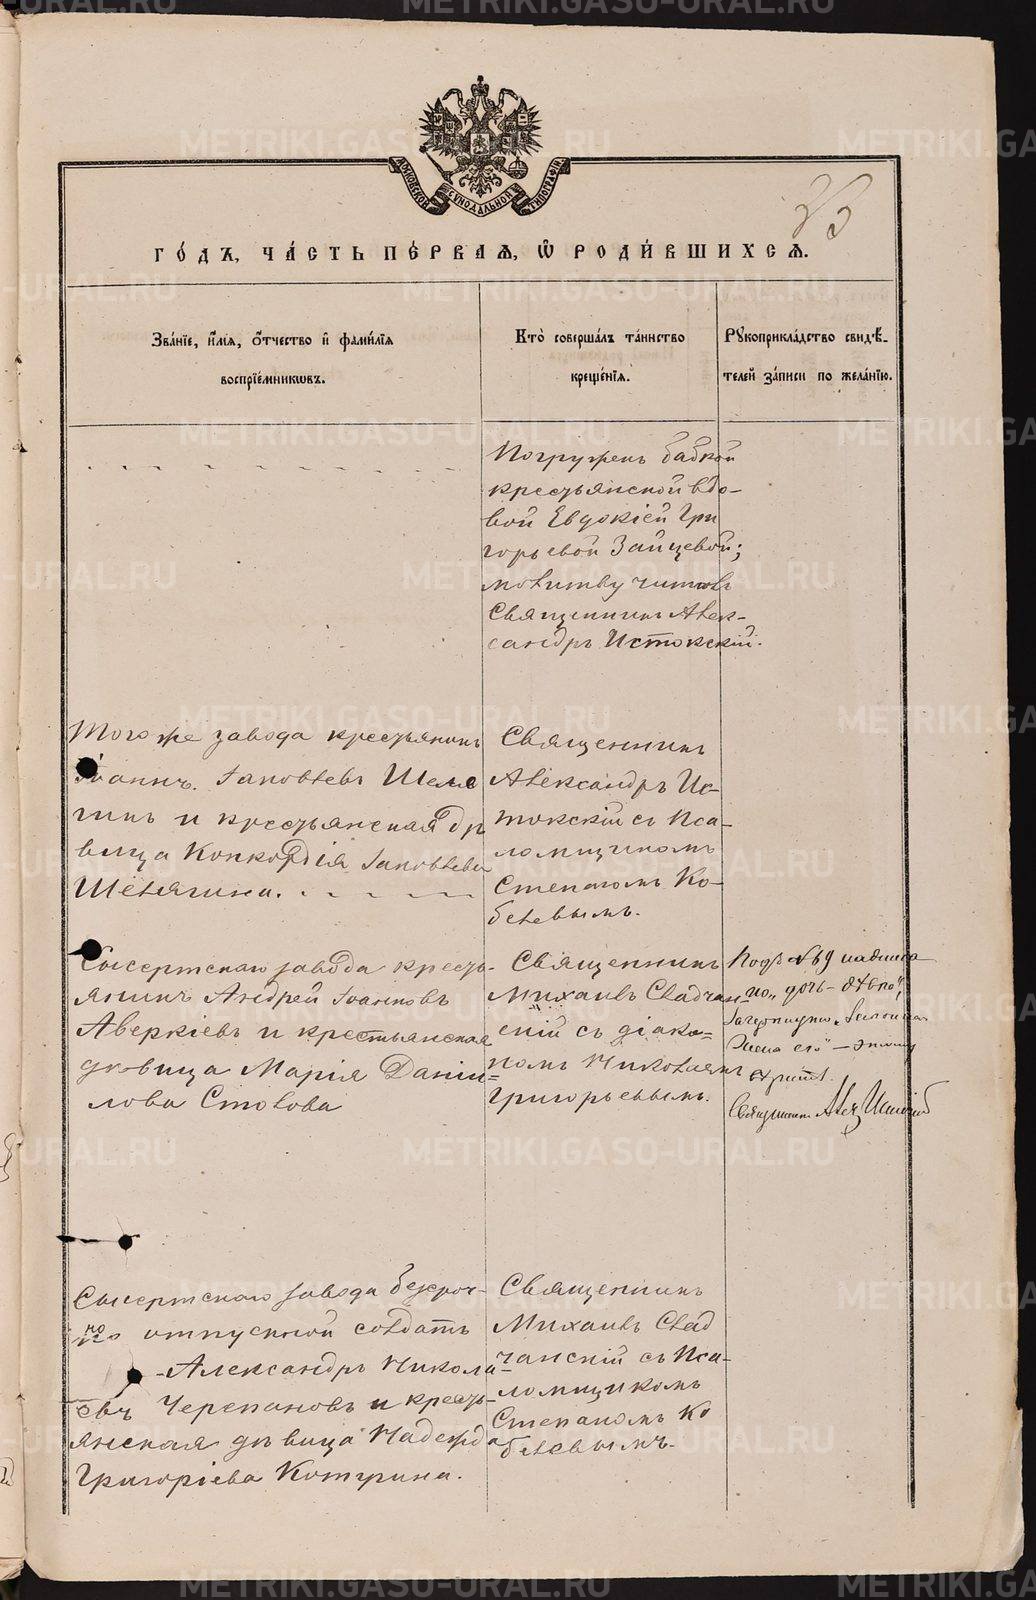 METRIKI.GASO-URAL.RU
МОСКОВСКОЙ СѴНОДАЛЬНОЙ ТИПОГРАФІИ
ГО́ДЪ, ЧА́СТЬ ПЕ́РВАѦ, Ѡ҆ РОДИ́ВШИХСѦ.
Зва́нїе, и҆́мѧ, ѻ҆́тчество и҆ фами́лїѧ
воспрїе́мникѡвъ.
Кто̀ соверша́лъ та́инство
креще́нїѧ.
Рꙋкоприкла́дство свидѣ́-
телей за́писи по жела́нїю.
Погруженъ бабкой
крестьянской вдо-
вой Евдокіей Гри
горьевой Зайцевой;
молитву читалъ
Священникъ Алек-
сандръ Истокскій.
Того же завода крестьянинъ
Іоаннъ Іаковлевъ Шеля
гинъ и крестьянская дѣ
вица Конкордія Іаковлева
Шелягина.
Священникъ
Александръ Ис-
токскій съ Пса-
ломщикомъ
Степаномъ Ко-
белевымъ.
Сысертскаго завода кресть-
янинъ Андрей Іоанновъ
Аверкіевъ и крестьянская
дѣвица Марія Даніи-
лова Столова
Священникъ
Михаилъ Сладчан-
скій съ діако-
номъ Николаемъ
Григорьевымъ.
Подъ № 69 надписа-
но
Законная
жена его" –
Священникъ Алек. Истокскій
Сысертскаго завода безсроч-
но отпускной солдатъ
Александръ Никола
евъ Черепановъ и кресть-
янская дѣвица Надежда
Григоріева Котурина.
Священникъ
Михаилъ Слад
чанскій съ Пса-
ломщикомъ
Степаномъ Ко
белевымъ.